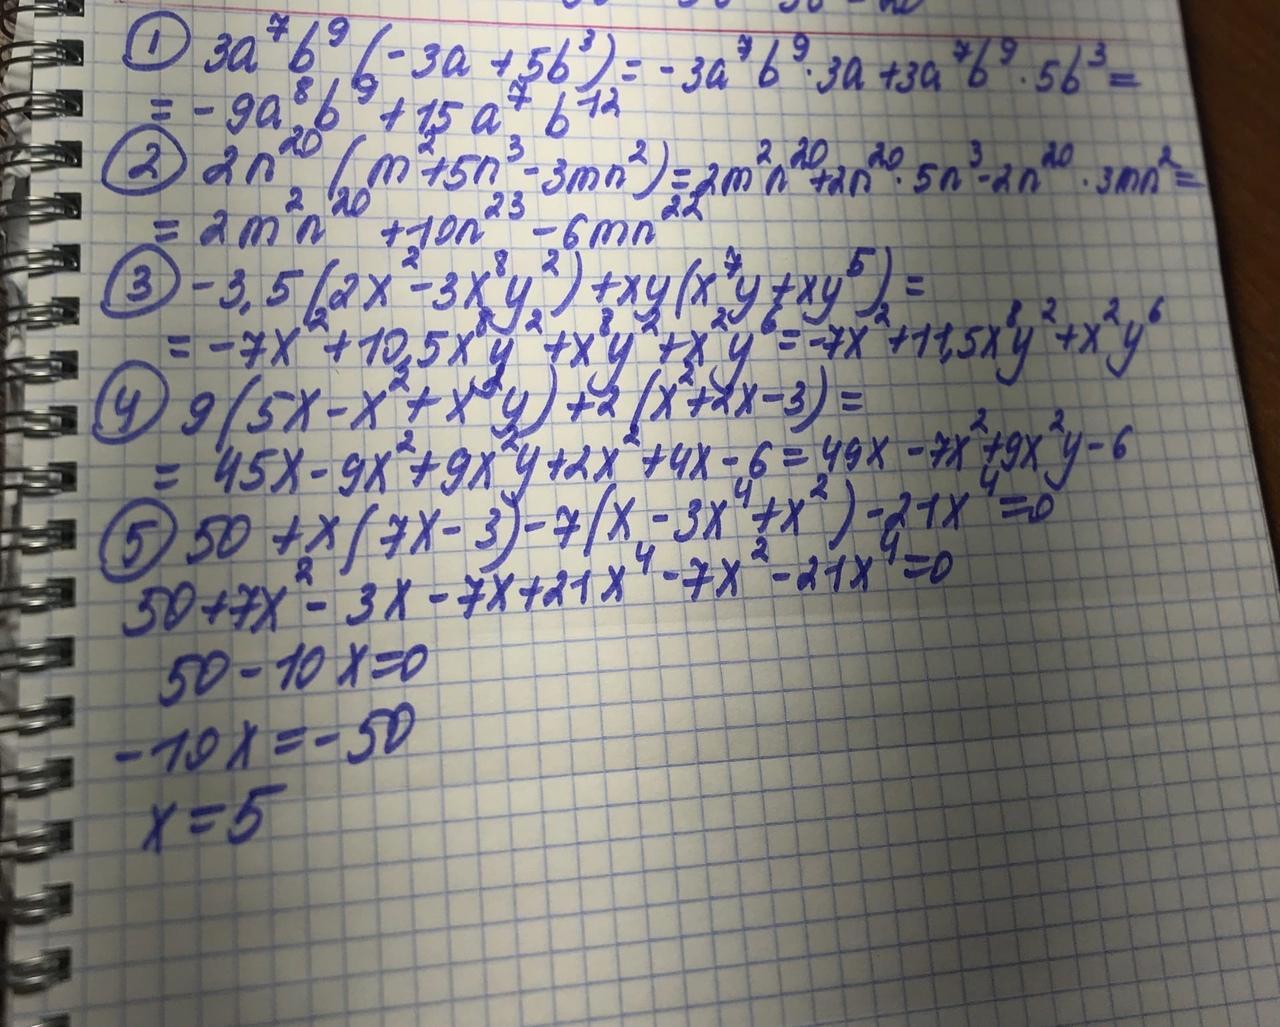 ① 3a⁷b⁹(-3a+5b³)=-3a⁷b⁹·3a+3a⁷b⁹·5b³=
=-9a⁸b⁹+15a⁷b¹²
② 2n²⁰(m²+5n³-3mn²)=2m²n²⁰+2n²⁰·5n³-2n²⁰·3mn²=
=2m²n²⁰+10n²³-6mn²²
③ -3,5(2x²-3x⁸y²)+xy(x⁷y+xy⁵)=
=-7x²+10,5x⁸y²+x⁸y²+x²y⁶=-7x²+11,5x⁸y²+x²y⁶
④ 9(5x-x²+x²y)+2(x²+2x-3)=
=45x-9x²+9x²y+2x²+4x-6=49x-7x²+9x²y-6
⑤ 50+x(7x-3)-7(x-3x⁴+x²)-21x⁴=0
50+7x²-3x-7x+21x⁴-7x²-21x⁴=0
50-10x=0
-10x=-50
x=5